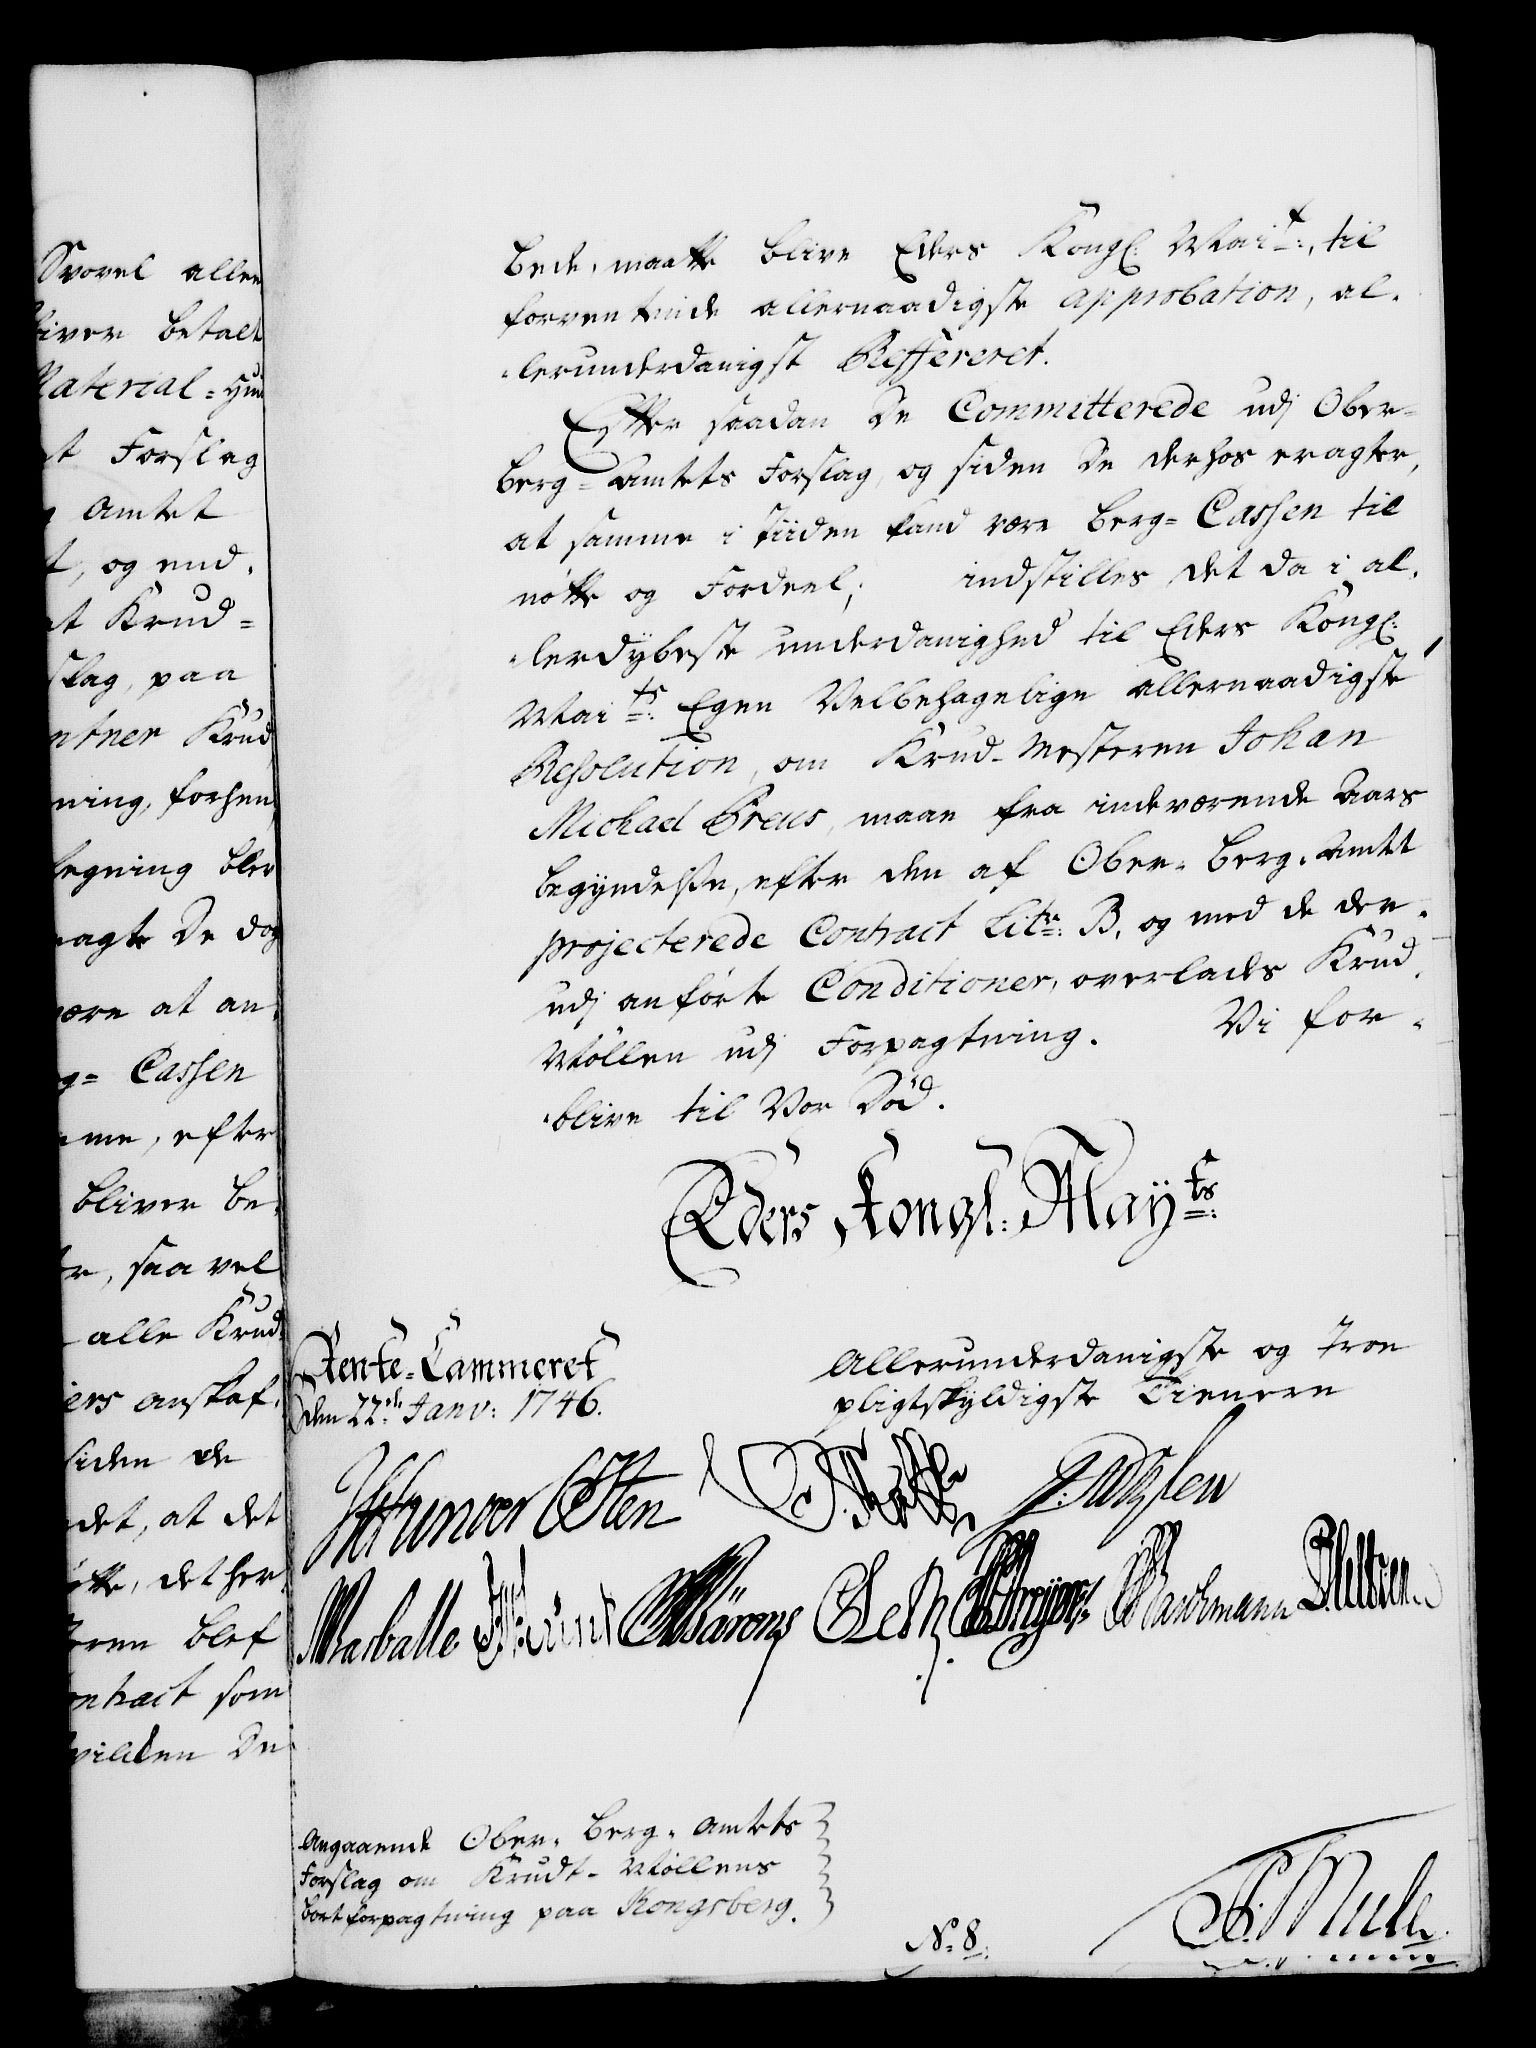 Svovel allen
bliver betalt
Material-Huu
t Forslag
Amtet
t, og end-
at Krud-
slag, paa
ntner Krud
ning, forhen
legning blev
agte De dog
være at an-
g= Cassen
me, efter
bliver be-
te, saavel
alle Krud-
iers anskaf-
siden de
det, at det
ötte, det her-
eren blef
ontract som
vilden De
bede, maatte blive Eders Kongl: Mai:t, til
forventende allernaadigste approbation, al-
-lerunderdanigst Reffereret.
Efter saadan De Committerede udj Ober-
berg-Amtets Forslag, og siden De derhos eragter,
at samme i Tiiden kand være Berg-Cassen til
nötte og Fordeel; indstilles det da i al-
-lerdybeste underdanighed til Eders Kongl:
Mai:ts Egen Velbehagelige allernaadigste
Resolution, om Krud-Mesteren Johan
Michael Preus, maae fra indeværende Aars
begyndelse, efter den af Ober-Berg-Amtet
projecterede Contract Litr: B, og med de der-
udj anförte Conditioner, overlades Krud-
Möllen udj Forpagtning. Vi for-
-blive til Vor Död.
Eders Kongl: May:ts
Rente-Cammeret
den 22de Janv: 1746.
Allerunderdanigste og troe
pligtskyldigste Tienere
Osten
Angaaende Ober-Berg-Amtets
Forslag om Krudt-Möllens
bortforpagtning paa Kongsberg.
No 8.
Mule